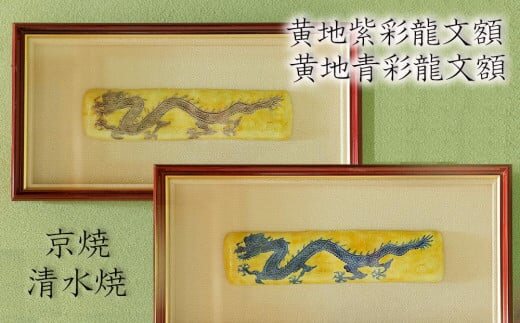 黄地紫彩龍文額
黄地青彩龍文額
京焼
清水焼